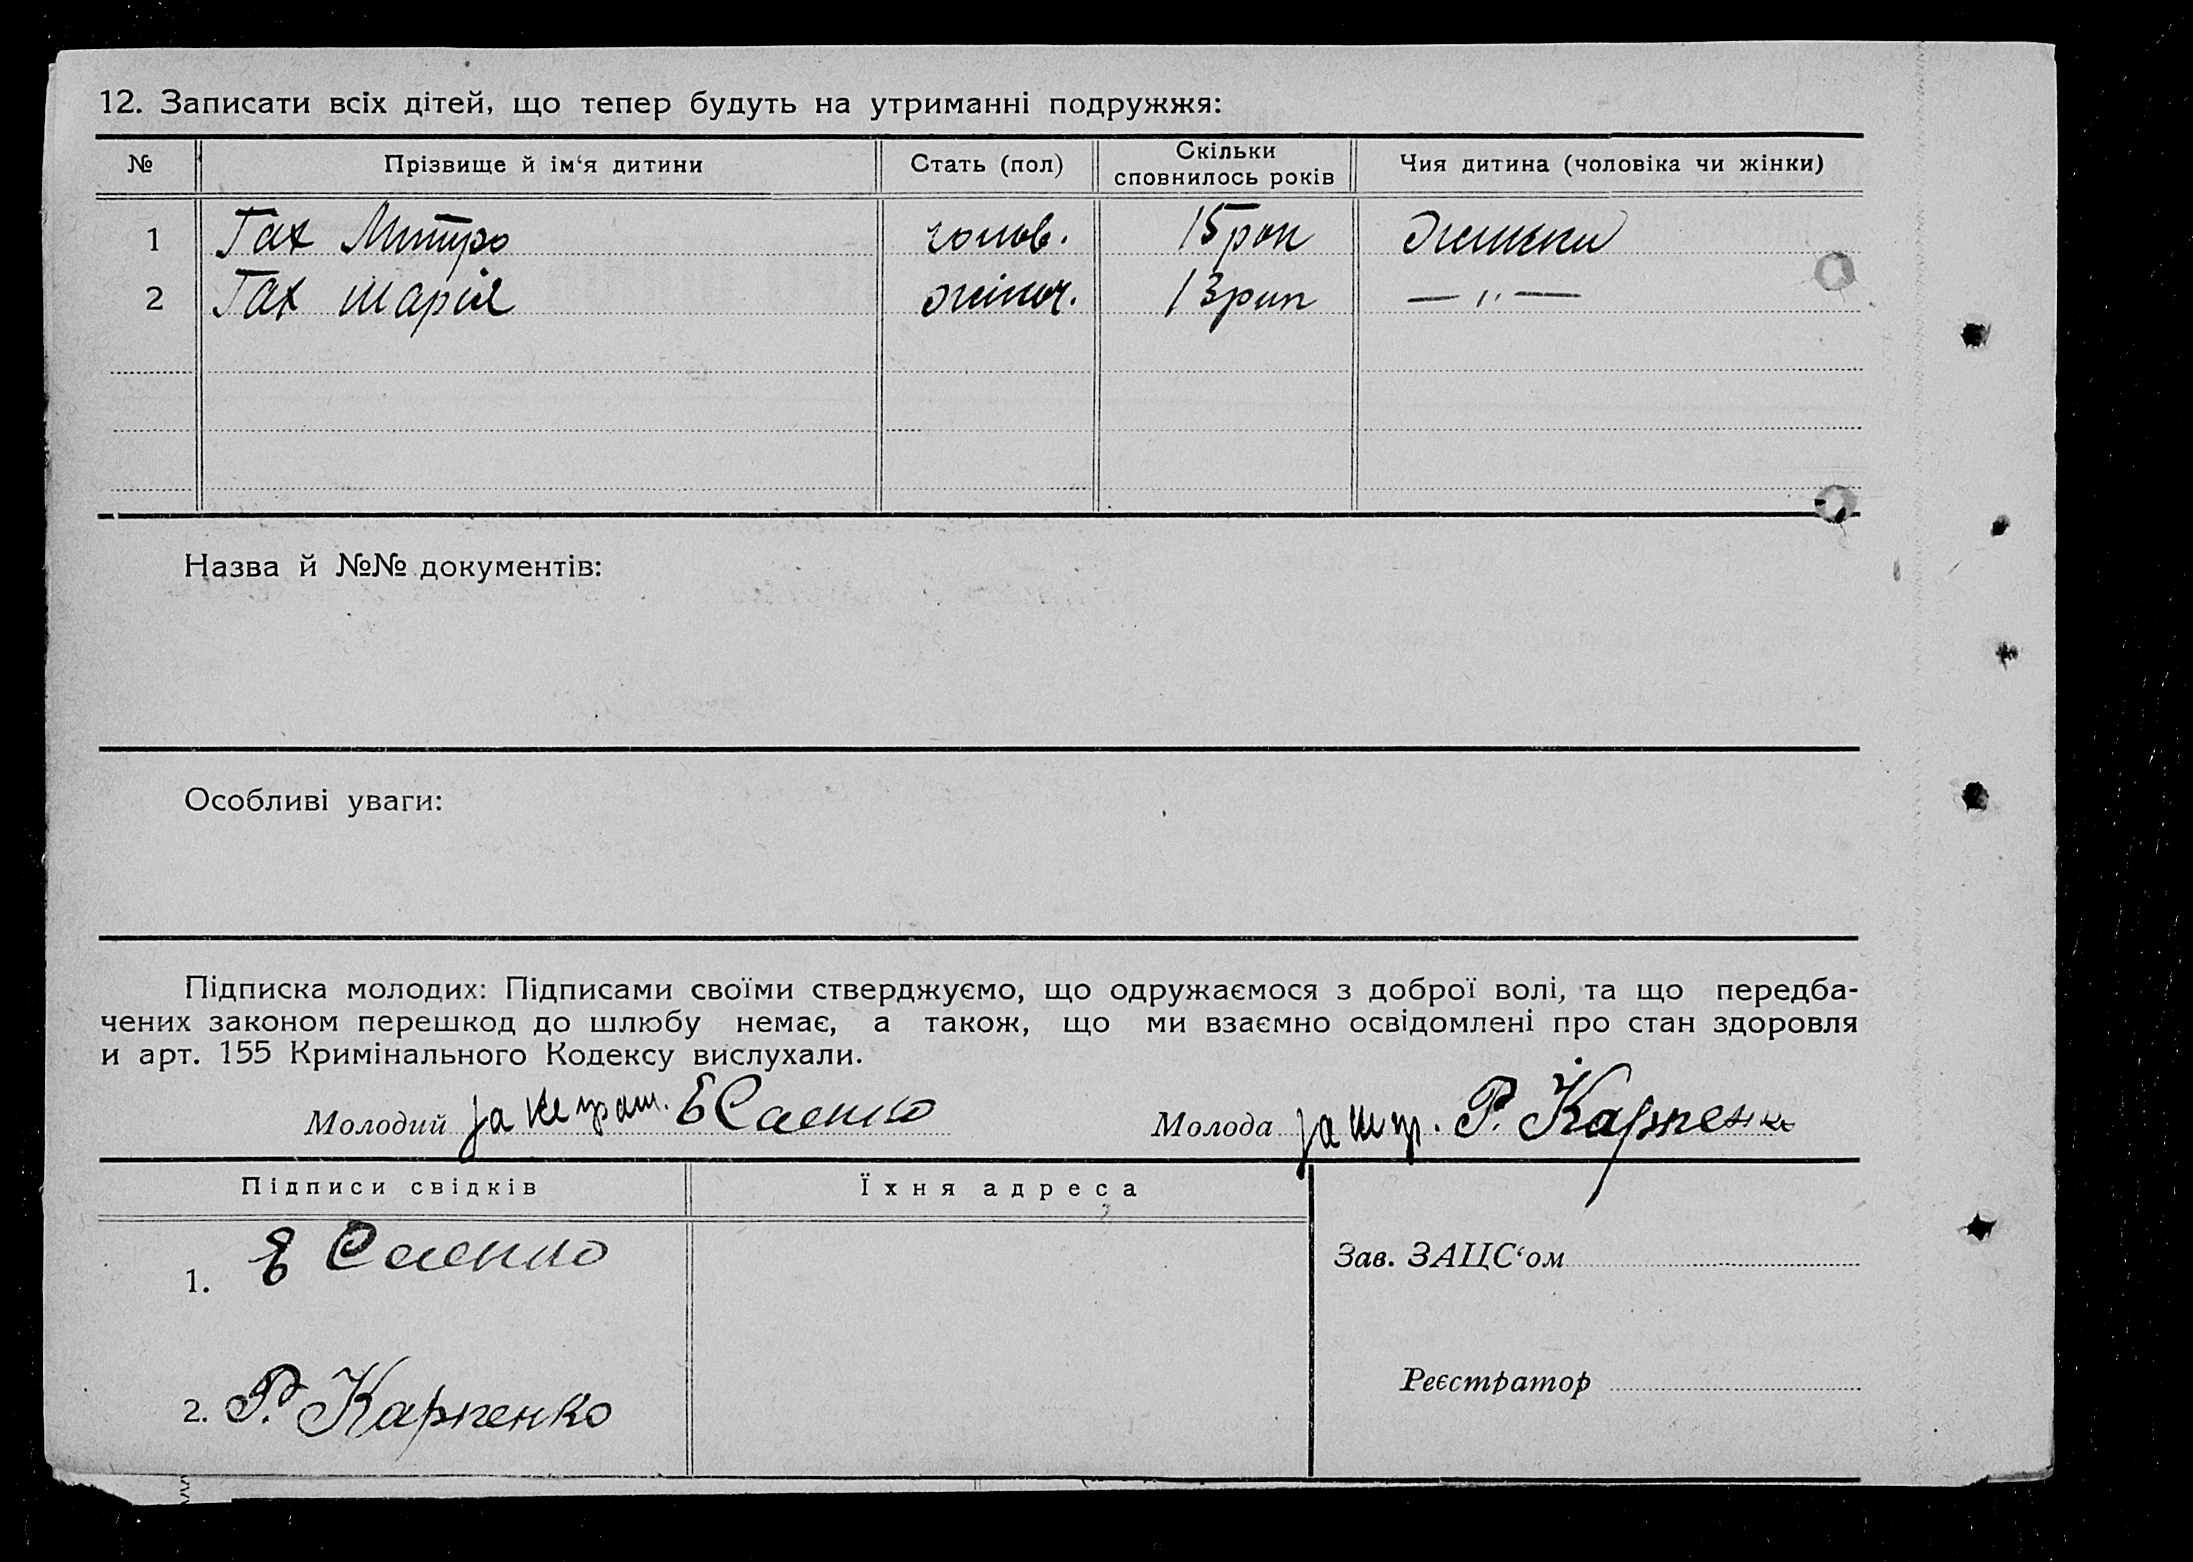 12. Записати всіх дітей, що тепер будуть на утриманні подружжя:
№ Прізвище й ім‘я дитини Стать (пол) Скільки сповнилось років Чия дитина (чоловіка чи жінки)
1 Гах Митро чолов. 15 рок Жинки
2 Гах Марія жіноч. 13 рок — " —
Назва й №№ документів:
Особливі уваги:
Підписка молодих: Підписами своїми стверджуємо, що одружаємося з доброї волі, та що передба-
чених законом перешкод до шлюбу немає, а також, що ми взаємно освідомлені про стан здоровля
и арт. 155 Кримінального Кодексу вислухали.
Молодий за не Е Саенко Молода за Р. Карпенко
Підписи свідків Їхня адреса
1. Е Саенко
Зав. ЗАЦС‘ом
Реєстратор
2. Р. Карпенко